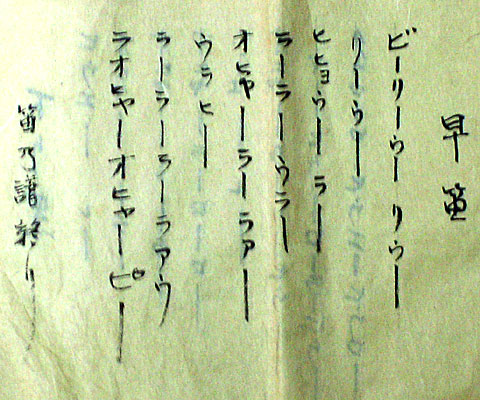 早笛
ビーリーウー リウー
リーウー
ヒヒョウーラー
ラーラーウラー
オヒャーラーラアー
ウラヒー
ラーラーラーラアウ
ラオヒャーオヒャーピー
笛乃譜終り